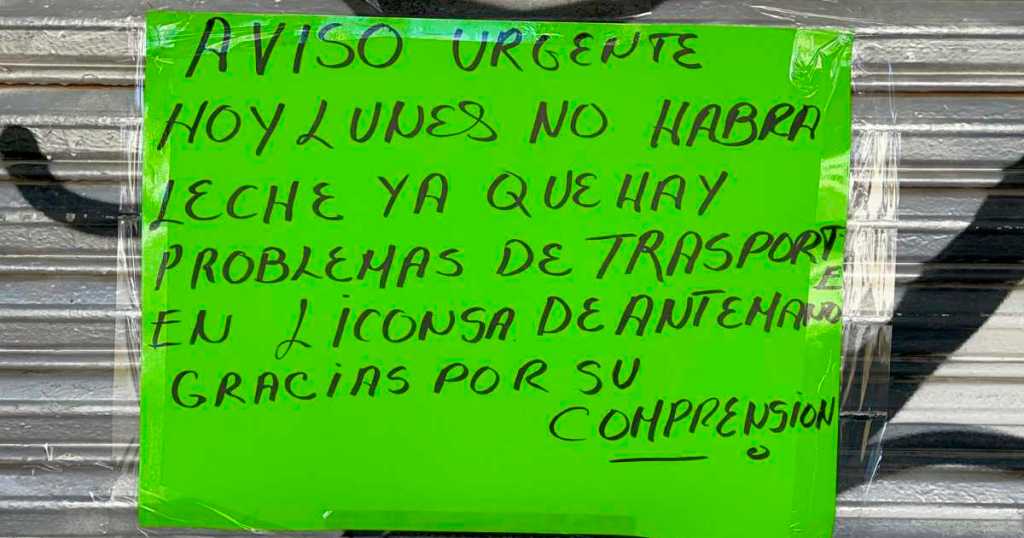 AVISO URGENTE
HOY LUNES NO HABRA
LECHE YA QUE HAY
PROBLEMAS DE TRASPORTE
EN LICONSA DE ANTEMANO
GRACIAS POR SU
COMPRENSION